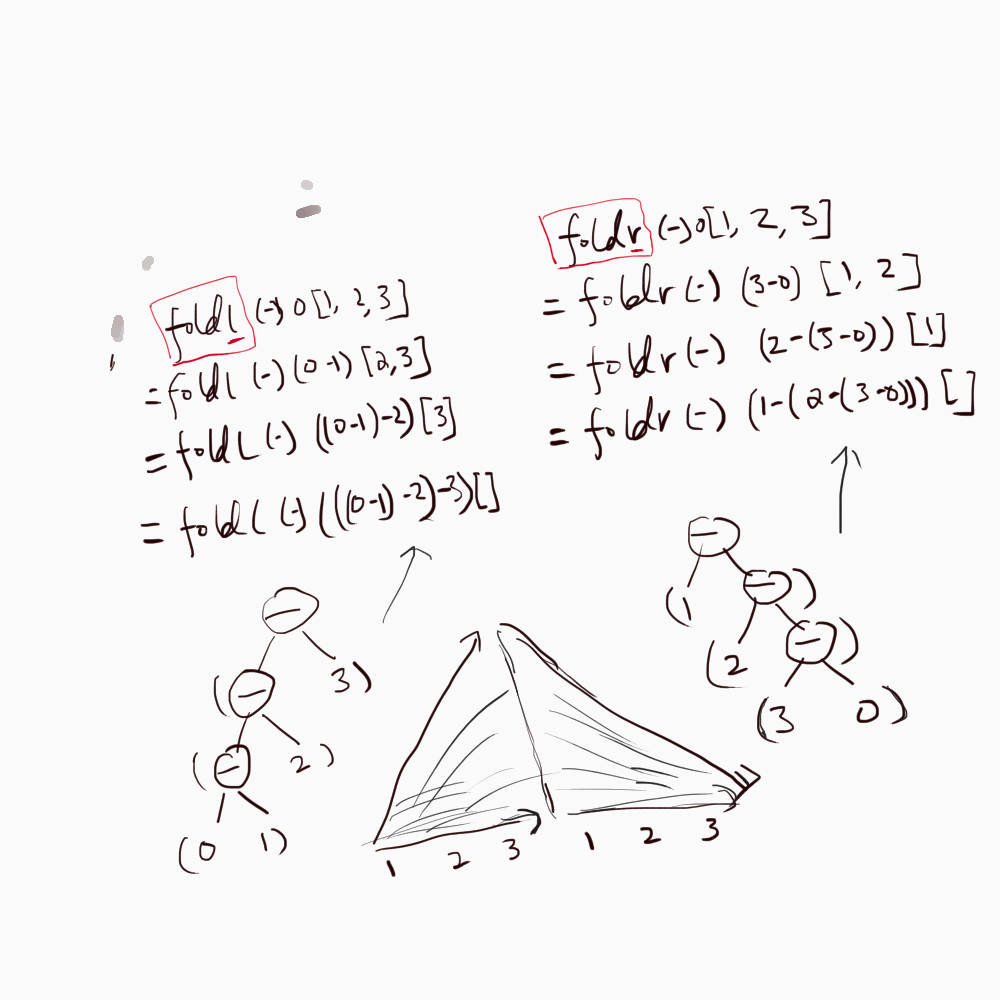 foldl (-) 0 [1, 2, 3]
= foldl (-) (0-1) [2,3]
= foldl (-) ((0-1)-2) [3]
= foldl (-) (((0-1)-2)-3) []
foldr (-) 0 [1, 2, 3]
= foldr (-) (3-0) [1, 2]
= foldr (-) (2-(3-0)) [1]
= foldr (-) (1-(2-(3-0))) []
-
(- 3)
(- 2)
(0 1)
-
(1 -)
(2 -)
(3 0)
1 2 3 1 2 3